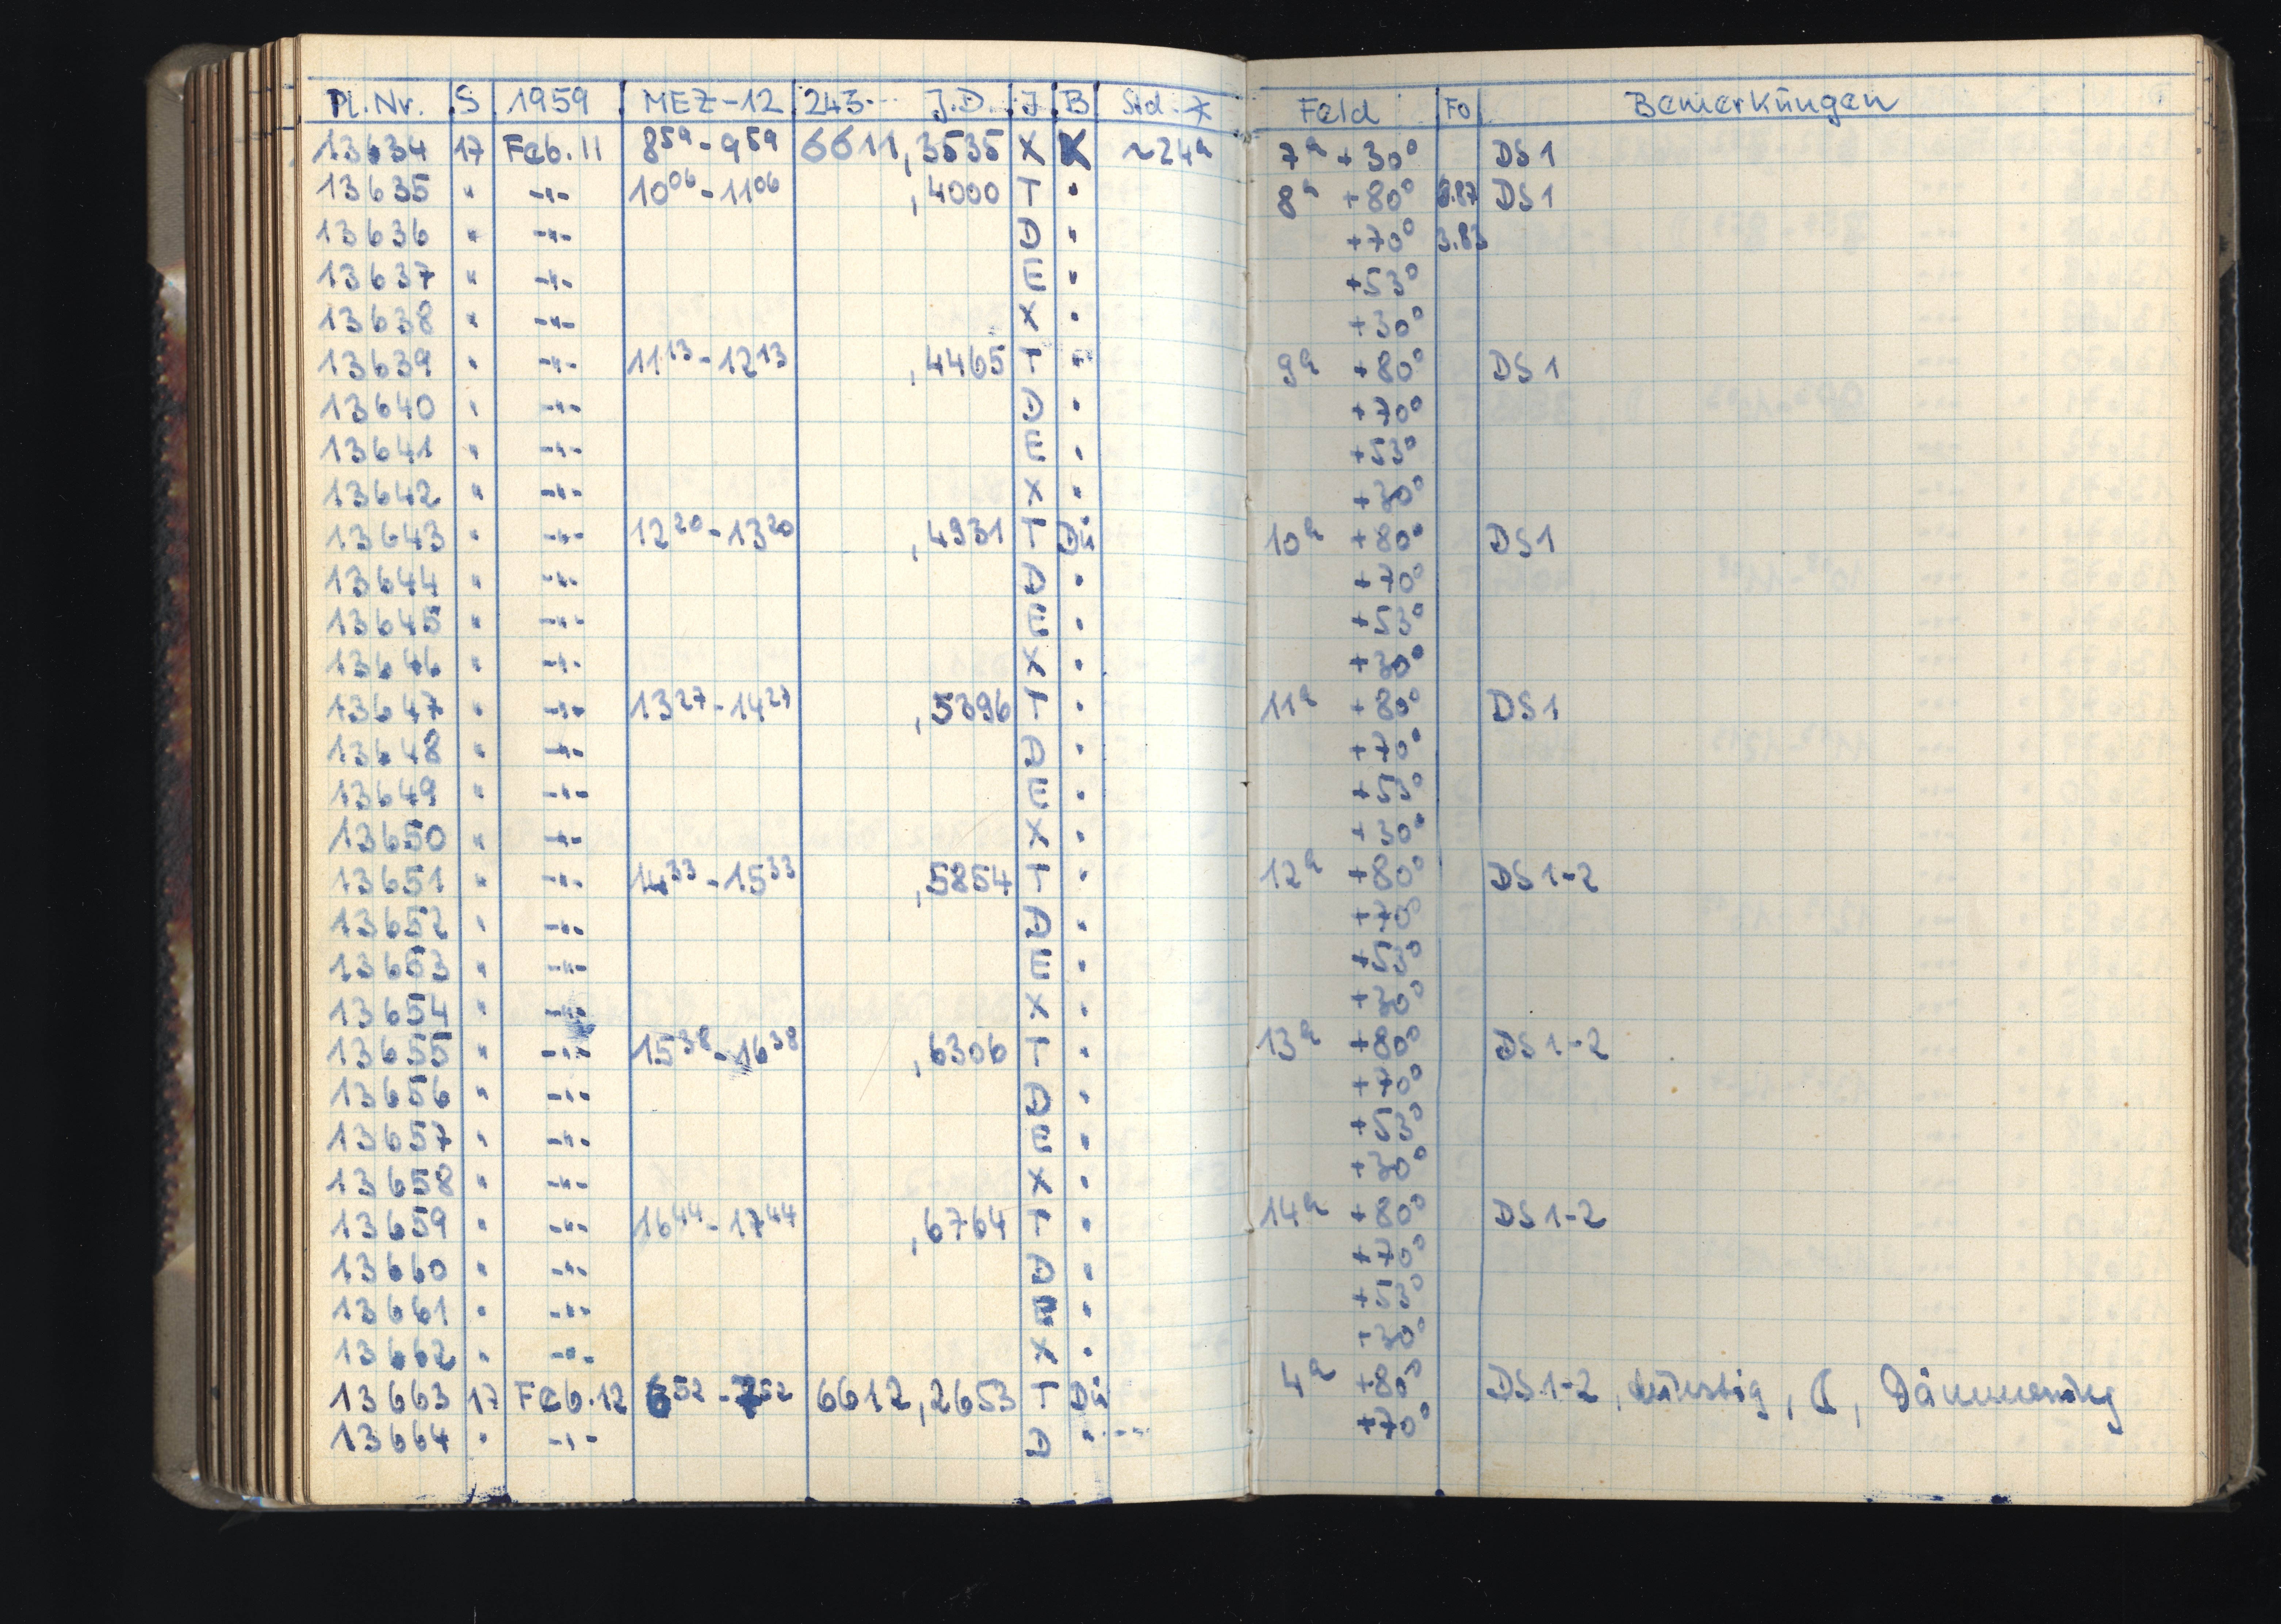 Pl. Nr. S 1959 MEZ-12 243... J.D. J B Std. * Feld Fo Bemerkungen
13634 17 Feb. 11 8⁵⁹-9⁵⁹ 6611,3535 X K ~24ʰ 7ʰ +30° DS1
13635 " -"- 10⁰⁶-11⁰⁶ ,4000 T " 8ʰ +80° DS1
13636 " -"- D " +70° 3.83
13637 " -"- E " +53°
13638 " -"- X " +30°
13639 " -"- 11¹³-12¹³ ,4465 T " 9ʰ +80° DS1
13640 " -"- D " +70°
13641 " -"- E " +53°
13642 " -"- X " +30°
13643 " -"- 12²⁰-13²⁰ ,4931 T Dü 10ʰ +80° DS1
13644 " -"- D " +70°
13645 " -"- E " +53°
13646 " -"- X " +30°
13647 " -"- 13²⁷-14²⁷ ,5396 T " 11ʰ +80° DS1
13648 " -"- D " +70°
13649 " -"- E " +53°
13650 " -"- X " +30°
13651 " -"- 14³³-15³³ ,5854 T " 12ʰ +80° DS1-2
13652 " -"- D " +70°
13653 " -"- E " +53°
13654 " -"- X " +30°
13655 " -"- 15³⁸-16³⁸ ,6306 T " 13ʰ +80° DS1-2
13656 " -"- D " +70°
13657 " -"- E " +53°
13658 " -"- X " +30°
13659 " -"- 16⁴⁴-17⁴⁴ ,6764 T " 14ʰ +80° DS1-2
13660 " -"- D " +70°
13661 " -"- E " +53°
13662 " -"- X " +30°
13663 17 Feb. 12 6⁵²-7⁵² 6612,2653 T Dü 4ʰ +80° DS1-2, dunstig, ☾, Dämmerung
13664 " -"- D " +70°